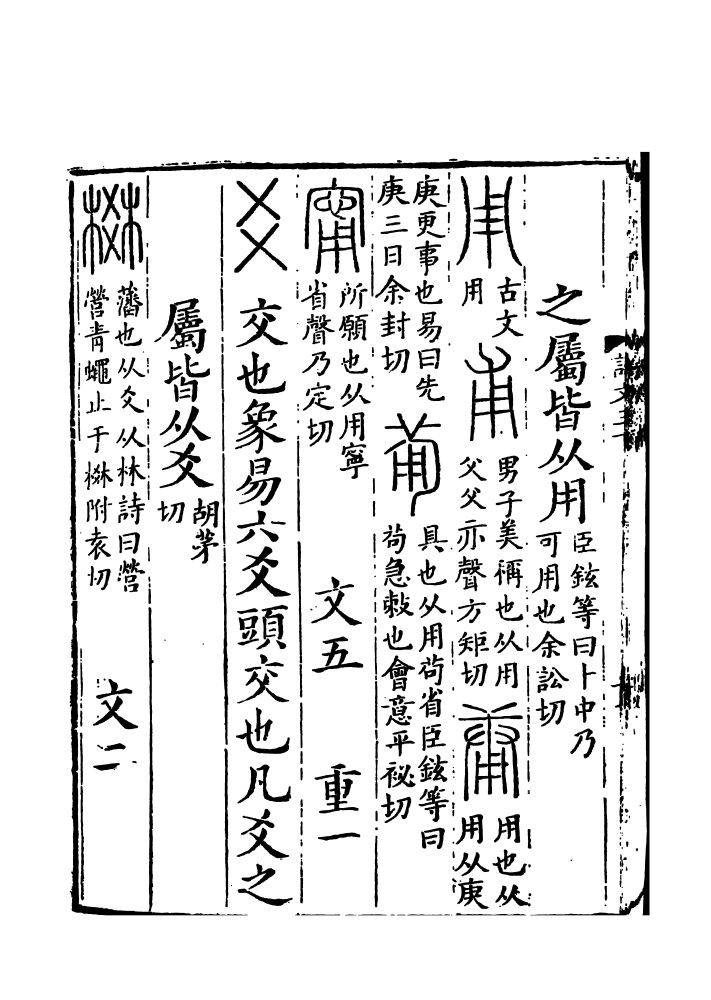 之屬皆从用臣鉉等曰卜中乃可用也余訟切
用古文用甫男子美稱也从用父父亦聲方矩切庸用也从用从庚
庚更事也易曰先庚三日余封切𤰇具也从用茍省臣鉉等曰茍急敕也會意平祕切
甯所願也从用寧省聲乃定切 文五 重一
爻交也象易六爻頭交也凡爻之
屬皆从爻胡茅切
棥藩也从爻从林詩曰營營青蠅止于棥附袁切 文二